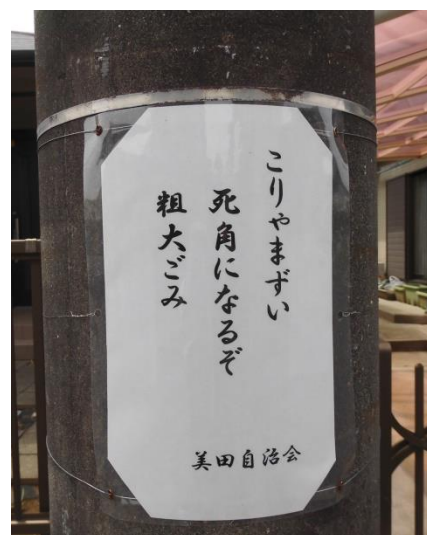 こりやまずい
死角になるぞ
粗大ごみ
美田自治会